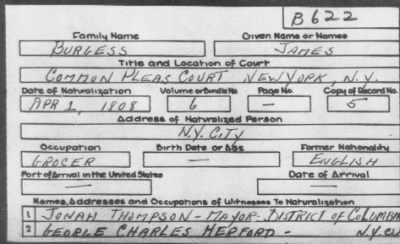 B622
Family Name Given Name or Names
BURGESS JAMES
Title and Location of Court
COMMON PLEAS COURT NEW YORK, N.Y.
Date of Naturalization Volume or Bundle No. Page No. Copy of Record No.
APR 1, 1808 6 — 5
Address of Naturalized Person
N.Y. CITY
Occupation Birth Date or Age Former Nationality
GROCER — ENGLISH
Port of Arrival in the United States Date of Arrival
— —
Names, Addresses and Occupations of Witnesses To Naturalization
1 JONAH THOMPSON - MAYOR - DISTRICT OF COLUMBIA
2 - GEORGE CHARLES HEPFORD - N.Y. CI